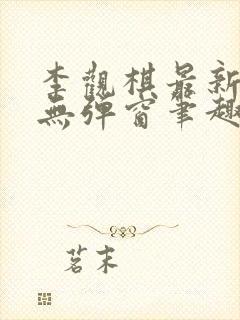 李觀棋最新
無彈窗筆趣
茗末